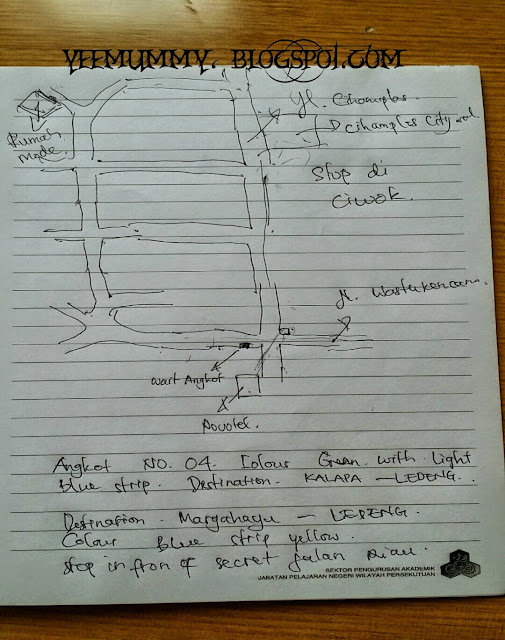 YEEMUMMY. BLOGSPOT.COM
Jl. Cihamplas.
Dcihamplas City
Rumah
Mode.
Stop di
Ciwok.
Jl. Wastukencana.
Wait Angkot
Novotel.
Angkot NO. 04. Colour Green with light
blue strip. Destination. KALAPA — LEDENG.
Destination. Margahayu — LEDENG.
Colour Blue strip yellow.
Stop in fron of secret jalan Riau.
SEKTOR PENGURUSAN AKADEMIK
JABATAN PELAJARAN NEGERI WILAYAH PERSEKUTUAN